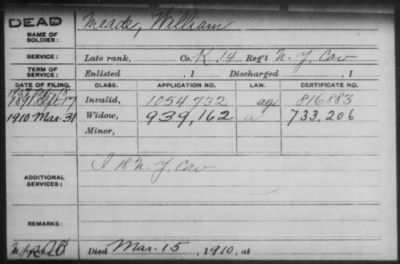 DEAD
NAME OF SOLDIER: Meade, William
SERVICE: Late rank, Co. K 14 Reg't N. Y. Cav
TERM OF SERVICE: Enlisted , 1 Discharged , 1
DATE OF FILING. CLASS. APPLICATION NO. LAW. CERTIFICATE NO.
Invalid, 1054,732 816883
1910 Mar. 31 Widow, 939,162 733,206
Minor,
ADDITIONAL SERVICES: I 18 N. Y. Cav
REMARKS:
Died Mar. 15, 1910, at